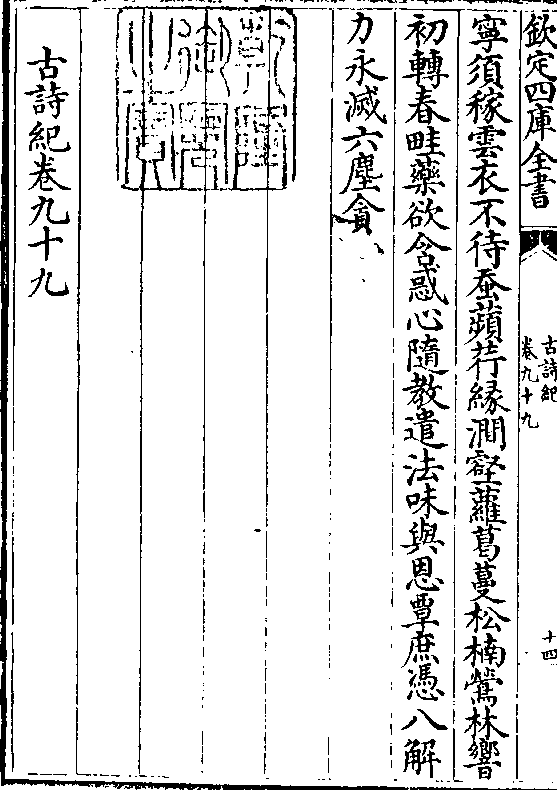 欽定四庫全書
古詩紀
卷九十九
十四
寧須稼雲衣不待蚕蘋荇緣澗壑蘿葛蔓松楠鶯林響
初轉春畦藥欲含惑心隨教遣法味與恩覃庶憑八解
力永滅六塵貪
乾隆
御覽
之寶
古詩紀卷九十九